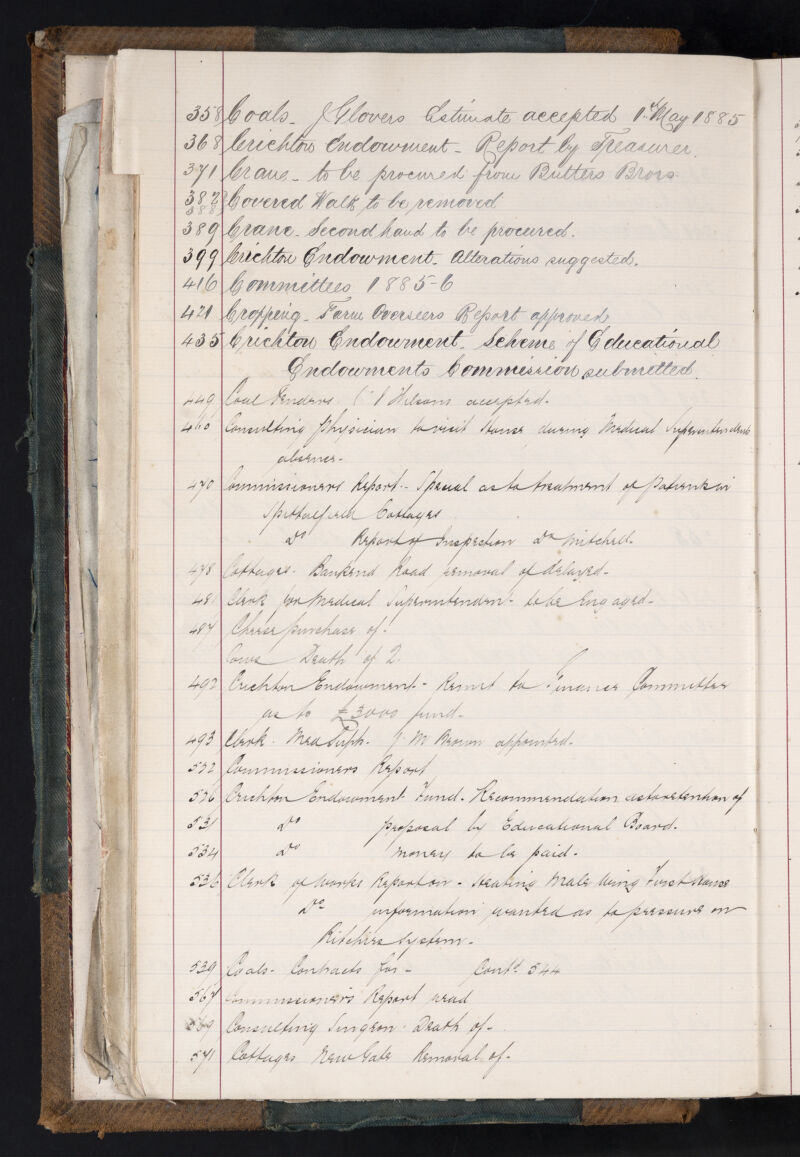 358 Coals - J Glovers Estimate accepted 1st May 1885
368 Crichton Endowment - Report by Treasurer.
371 Crane - to be procured from Butters Bros.
387 Covered Walk to be removed
388
389 Crane - Second hand to be procured.
399 Crichton Endowment - Alterations suggested.
416 Committees 1885-6
421 Cropping - Farm Overseers Report approved
435 Crichton Endowment - Scheme of Educational
Endowments Commission submitted.
449 Coal Tenders Wilsons accepted -
460 Consulting Physician to visit House during Medical Superintendents
absence -
470 Commissioners Report - Special as to treatment of Patients in
Spittalfield Cottages
Do Report of Inspection Dr Mitchell -
478 Cottages - Bankend Road removal of delayed -
481 Clerk for Medical Superintendent - to be Engaged -
487 Cheese purchase of -
Cows Death of 2.
492 Crichton Endowment - Remit to Finance Committee
as to £3000 fund -
493 Clerk - Med Supt. J. M Brown appointed -
522 Commissioners Report
526 Crichton Endowment Fund - Recommendation as to retention of
531 Do proposal by Educational Board -
534 Do money to be paid -
536 Clerk of Works Report on - Heating Male Wing First House
Do information wanted as to pressure on
Ritchies System -
539 Coals - Contracts for - Contd 544
567 Commissioners Report read
569 Consulting Surgeon - Death of -
571 Cottages New Gate Removal of -